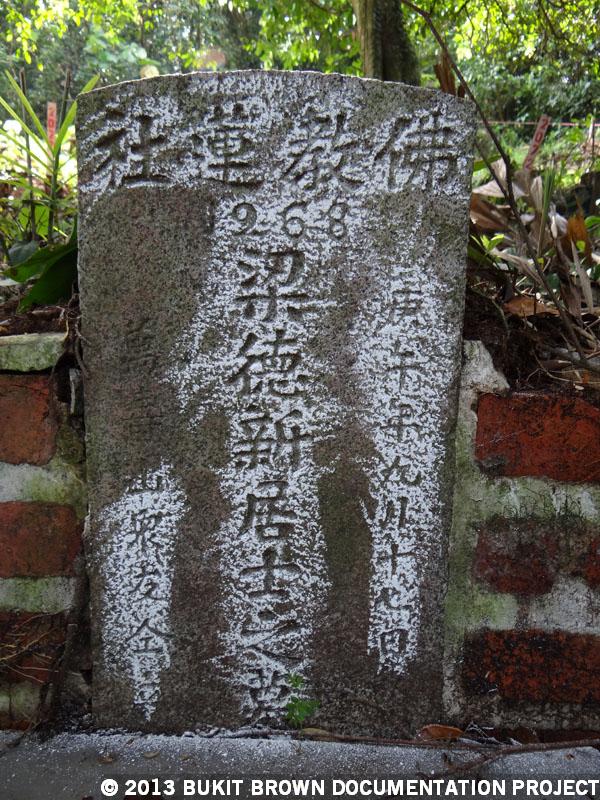 佛教蓮社
268
庚午年九月十七日
梁德新居士之墓
山衆友仝立
© 2013 BUKIT BROWN DOCUMENTATION PROJECT